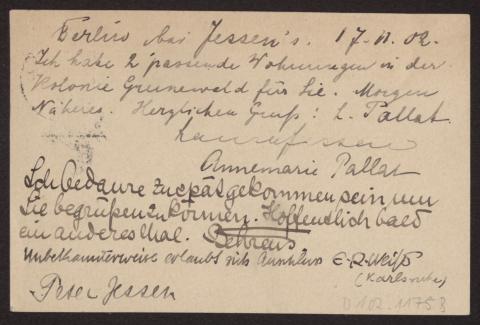 Berlin bei Jessen's. 17.11.02.
Ich habe 2 passende Wohnungen in der
Kolonie Grunewald für Sie. Morgen
Näheres. Herzlichen Gruß: L. Pallat.
Annemarie Pallat
Ich bedaure zu spät gekommen sein, um
Sie begrüßen zu können. Hoffentlich bald
ein anderes Mal. Behrens
Unbekannterweise erlaubt sich Anschluss E-R-Weiß
(Karlsruhe)
Peter Jessen
D 102.1175 B